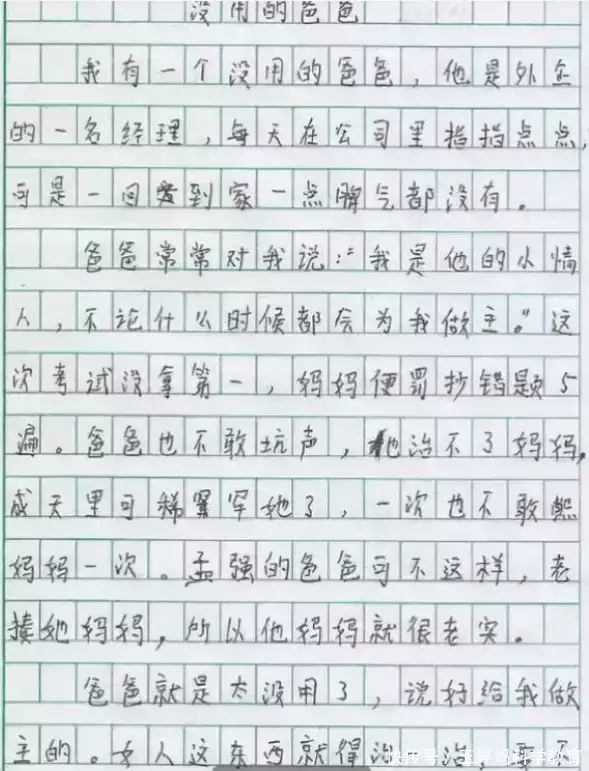 没用的爸爸
我有一个没用的爸爸，他是外企
的一名经理，每天在公司里指指点点，
可是一回到家一点脾气都没有。
爸爸常常对我说：“我是他的小情
人，不论什么时候都会为我做主。”这
次考试没拿第一，妈妈便罚抄错题5
遍。爸爸也不敢坑声，他治不了妈妈，
成天里可稀罕她了，一次也不敢熊
妈妈一次。孟强的爸爸可不这样，老
揍她妈妈，所以他妈妈就很老实。
爸爸就是太没用了，说好给我做
主的。女人这东西就得治